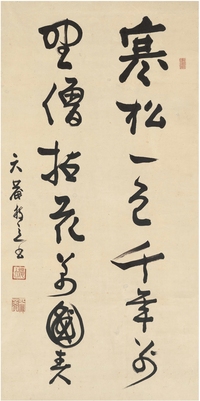 寒松一色千年別
野僧拈花萬國春
天龍 書